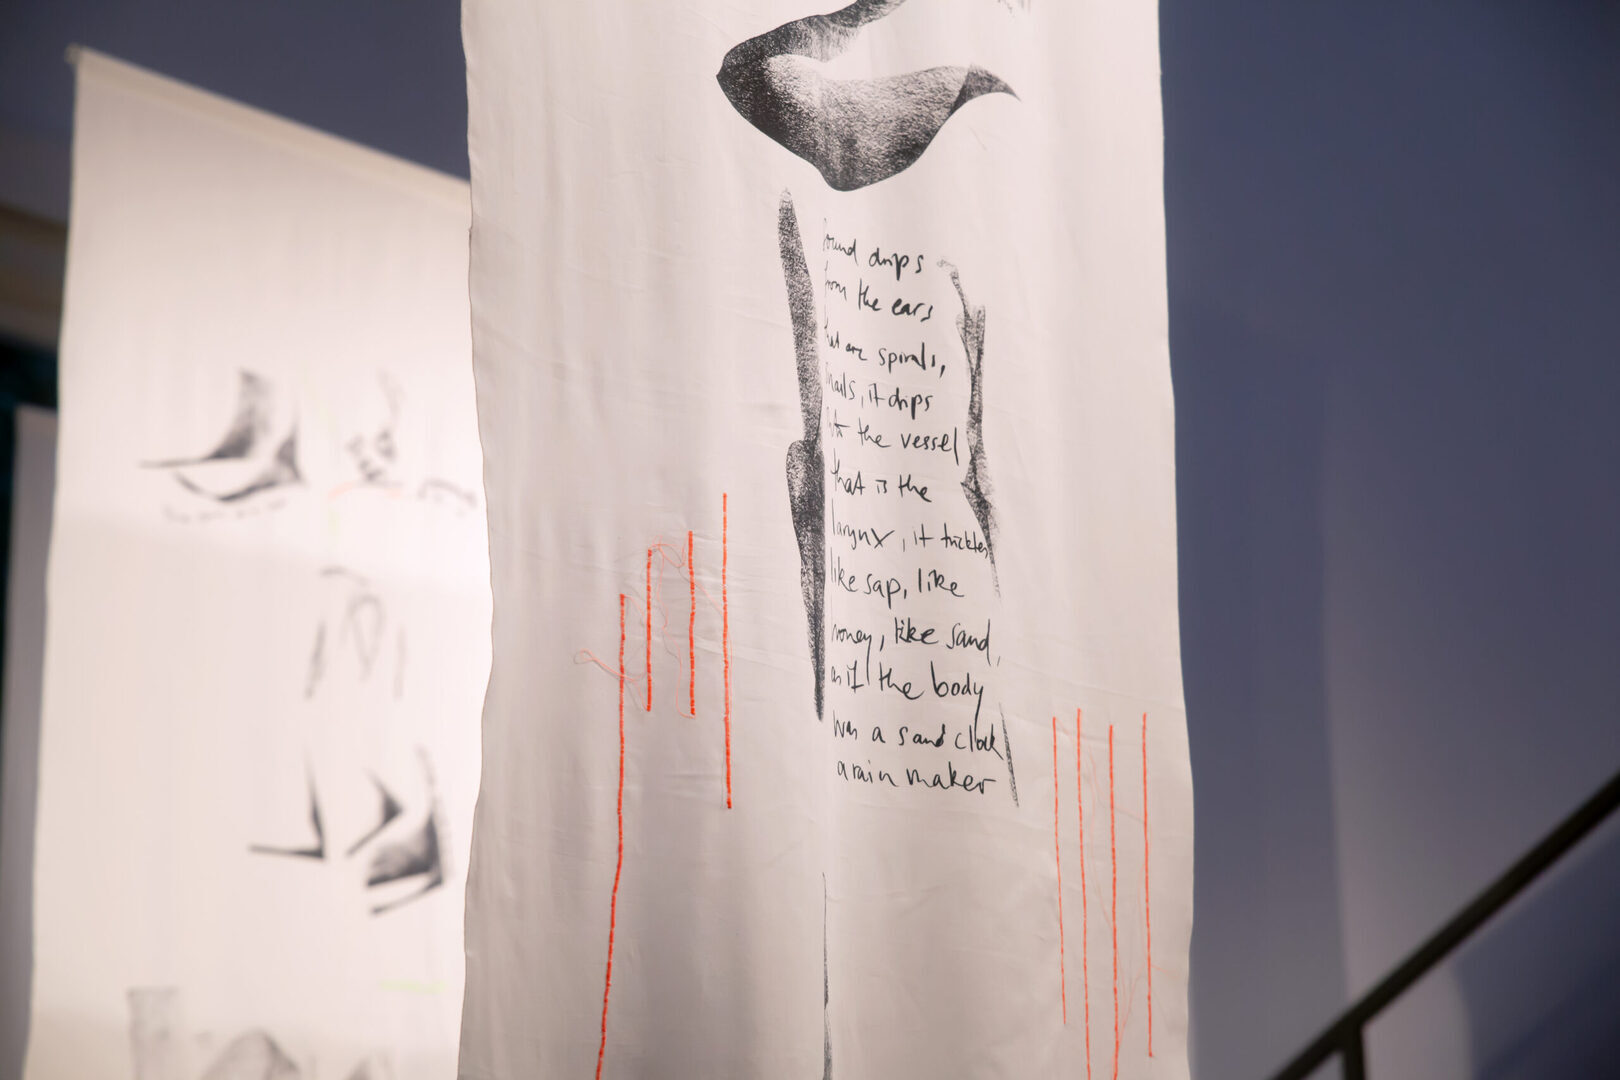 sound drips
from the ears
that are spirals,
snails, it drips
into the vessel
that is the
larynx, it trickles
like sap, like
honey, like sand,
as if the body
was a sand clock
a rain maker